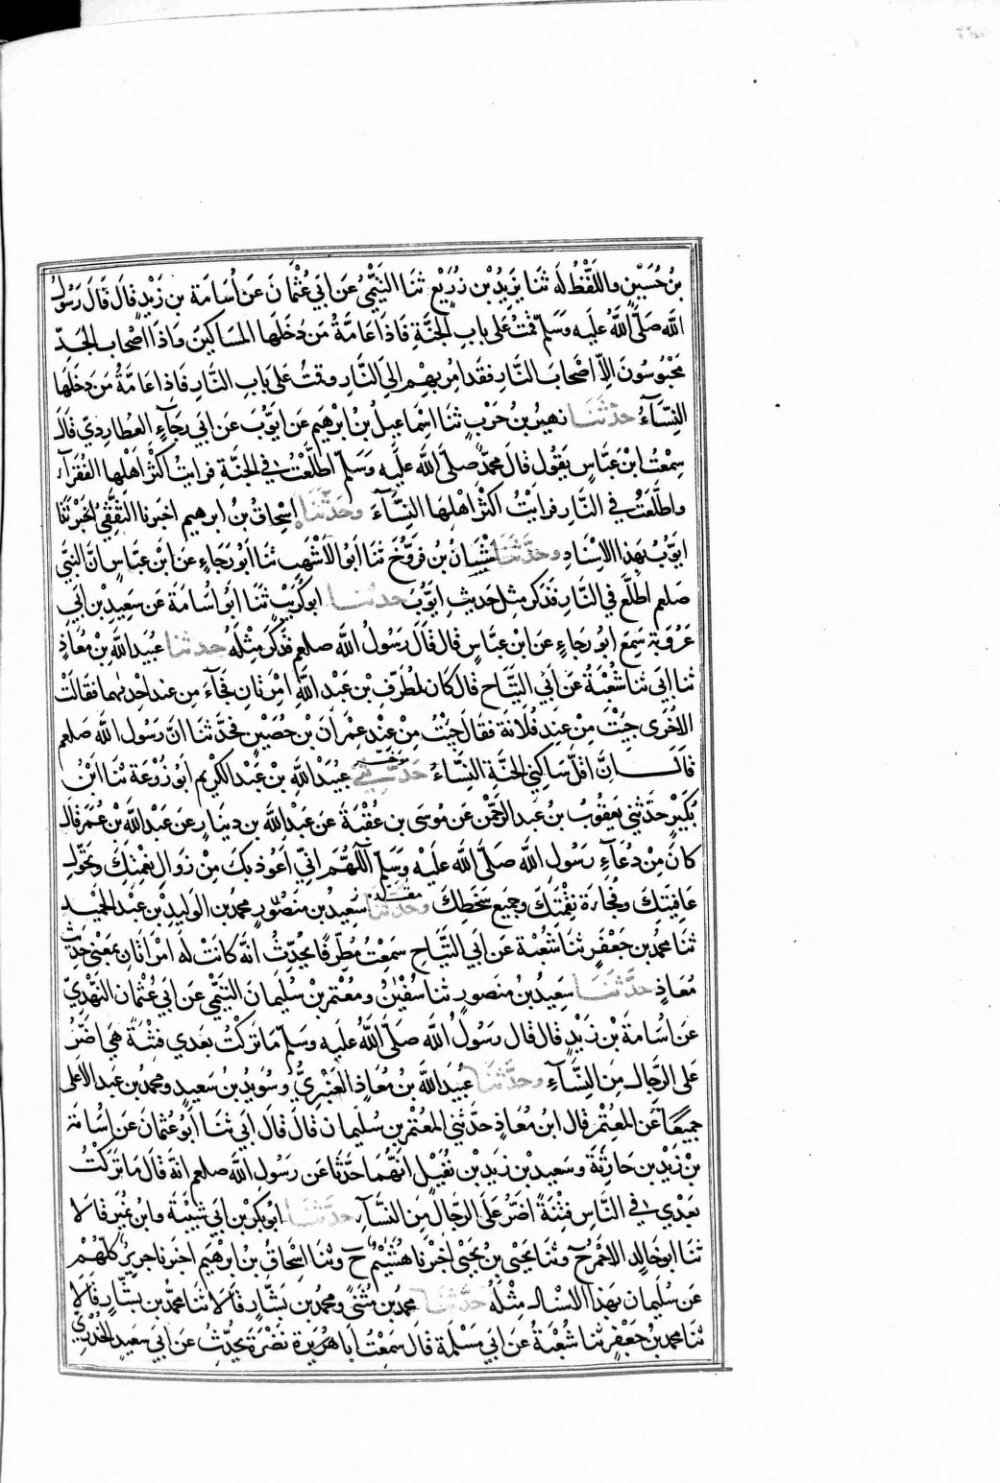 بن حُسَيْنٍ واللَّفْظُ لَه ثنا يَزِيدُ بْن زُرَيْع ثنا التَّيْمِي عَن اَبي عُثْمانَ عَن اُسَامَة بن زَيْدٍ قالَ قَالَ رَسُولُ
اللَّه صَلَّى اللَّهُ عَليه وَسَلَّم قُمْتُ عَلى بابِ الجنَّةِ فَاِذَا عَامَّةُ مَن دَخَلَها المسَاكينَ وَاذا اصْحابُ الجَدِّ
مَحْبُوسُونَ اِلاَّ اصْحَابَ النَّارِ فَقَد اُمِرَ بِهِمْ اِلىَ النَّارِ وقمتُ عَلى بابِ النَّارِ فَاِذا عَامَّةُ مَن دَخَلَها
النِّسَآءُ حَدَّثَنَا زهيرُ بن حَرْبٍ ثنا اسْماعيلُ بْن ابرهيمَ عَن ايَّوْبَ عَن اَبي رجَآءٍ العُطارديّ قَالَ
سمعْتُ ابْنَ عبَّاسٍ يَقُول قالَ محمَّدٌ صَلَّى اللَّه عَليه وَسَلَّم اطلعْتُ في الجنَّةِ فرايتُ اكثرَ اهْلها الفُقرَآءَ
واطلَعْتُ في النَّار فرَايْتُ اكثرَ اهْلِهَا النِّسَآءَ وحَدَّثَنَا اِسْحاقُ بنُ ابرهيم اخبرنا الثَّقَفيُّ اخْبَرَنَا
ايوّبُ بهذا الاسْنادِ وحدَّثَنَا شَيْبَانُ بن فَرُّوْخَ ثَنَا ابُو الاَشْهَبِ ثنا ابُو رَجَاءٍ عَن ابْن عبَّاسٍ انَّ النبيَّ
صَلعم اطلَّعَ في النَّارِ فَذكَر مثلَ حَديثِ ايُّوْبَ حَدثنَا ابو كُرَيبٍ ثَنَا ابُو اسَامَةَ عَن سَعِيدِ بْن اَبي
عَرُوبَة سَمِعَ ابُو رجاءٍ عَن ابْن عبَّاسٍ قالَ قَالَ رَسُولُ اللَّه صلعم فذَكَرَ مثْلَهُ حدثنا عُبيدُ اللَّه بن مُعَاذٍ
ثنا اَبي ثنا شُعْبَةُ عَن اَبي التَّيَّاحِ قالَ كَان لِمُطَرِّفِ بْن عَبْدِ اللَّهِ امْرَتَانِ فَجآءَ مِن عِند احْديهما فقالَتْ
الاُخْرَى جيْتَ مِنْ عِندِ فلاَنةَ فقالَ جيتُ مِنْ عِنْد عِمْرانَ بن حُصَيْنٍ فحَدَّثنا انَّ رَسُولَ اللَّه صَلعم
قالَ انَّ اقَلَّ سَاكِني الجنَّةِ النِّسَاءُ حَدَّثَني عُبَيْدُ اللَّه بْن عَبْدِ الكَرِيمِ ابُو زُرْعَةَ ثَنَا ابْنُ
بُكَيْرٍ حَدَّثنِي يَعقُوبُ بْن عَبد الرَّحمْنِ عَن مُوسَى بن عُقْبَةَ عَن عَبْد اللَّه بن دِينارٍ عَن عَبد اللَّه بْن عُمَرَ قالَ
كانَ مِنْ دُعَآءِ رَسُولِ اللَّه صَلَّى اللَّه عَليْه وَسَلَّم اللَّهُمَّ انّي اعُوذ بكَ مِنْ زوَالِ نِعْمَتِكَ وتحَوُّلِ
عَافِيَتِكَ وفُجَاءَةِ نقْمَتِكَ وجميعِ سَخَطِكَ وحَدَّثنَا سَعِيدُ بن مَنصُورٍ محمد بن الوَليدِ بْن عَبْد الحَميْدِ
ثَنَا محمد بن جَعْفَرٍ ثنا شُعْبَة عَن اَبي التَّيَّاحِ سَمِعْتُ مُطرِّفًا يحَدِّثُ انَّه كانتْ له امْرَاتَانِ بمَعْنَى حَدِيثِ
مُعَاذٍ حَدَّثنَا سَعِيدُ بن مَنصُورٍ ثنا سُفْيٰن ومُعْتمرُ بْنُ سُليمَانَ التَّيمِيّ عَن اَبي عُثْمان النَّهْدِيِّ
عَن اُسَامَةَ بْن زَيدٍ قالَ قَالَ رَسُولُ اللَّه صَلَّى اللَّهُ عَليه وسَلَّم مَا تَركْتُ بَعدِي فتْنَةً هيَ اضَرُّ
عَلى الرِّجالِ مِنَ النِّسَآءِ وحَدَّثنَا عُبَيدُ اللَّه بنُ مُعَاذٍ العَنْبرِيُّ وَسُوَيدُ بْن سَعِيدٍ ومحمد بن عَبد الاعْلى
جميعًا عَن المعْتمْرِ قال ابْن مُعَاذٍ حَدَّثني المعْتمِر بن سُليمانَ قالَ قَالَ اَبي ثنَا ابُو عُثمانَ عَن اُسَامَةَ
بْن زَيْد بن حَارثةَ وسَعِيد بْن زيد بْن نفَيْلٍ انَّهُمَا حَدَّثا عَن رَسُولِ اللَّه صلعم انّهُ قَالَ مَا تَركْتُ
بَعْدِي في النَّاسِ فِتْنَةً اضَرَّ عَلَى الرِّجالِ مِنَ النِّسَآءِ حَدَّثنَا ابو بكر بن اَبي شيْبَةَ وابنُ نُمَيْرٍ قالا
ثَنَا ابو خَالدٍ الاحْمَر ح وثنا يَحْيَى بنُ يَحْيَى اخْبرنا هُشَيْمٌ ح وثنا اِسْحَاقُ بنُ ابْرهِيم اخبرنا جَرِيرٌ كلُّهُمْ
عَن سُلَيمان بهَذا الاسْنادِ مثْلَهُ حَدَّثنَا محمد بن مُثنَّى ومحمد بن بَشَّارٍ قالا ثنا محمّد بن بَشَّارٍ قالا
ثنا محمد بن جَعْفَرٍ ثنا شُعْبَةُ عَن اَبي مَسْلَمَةَ قالَ سَمِعْتُ ابَا هُرَيرَة نَضْرَةَ يحَدِّثُ عَن اَبي سَعيدٍ الخُدْرِيِّ